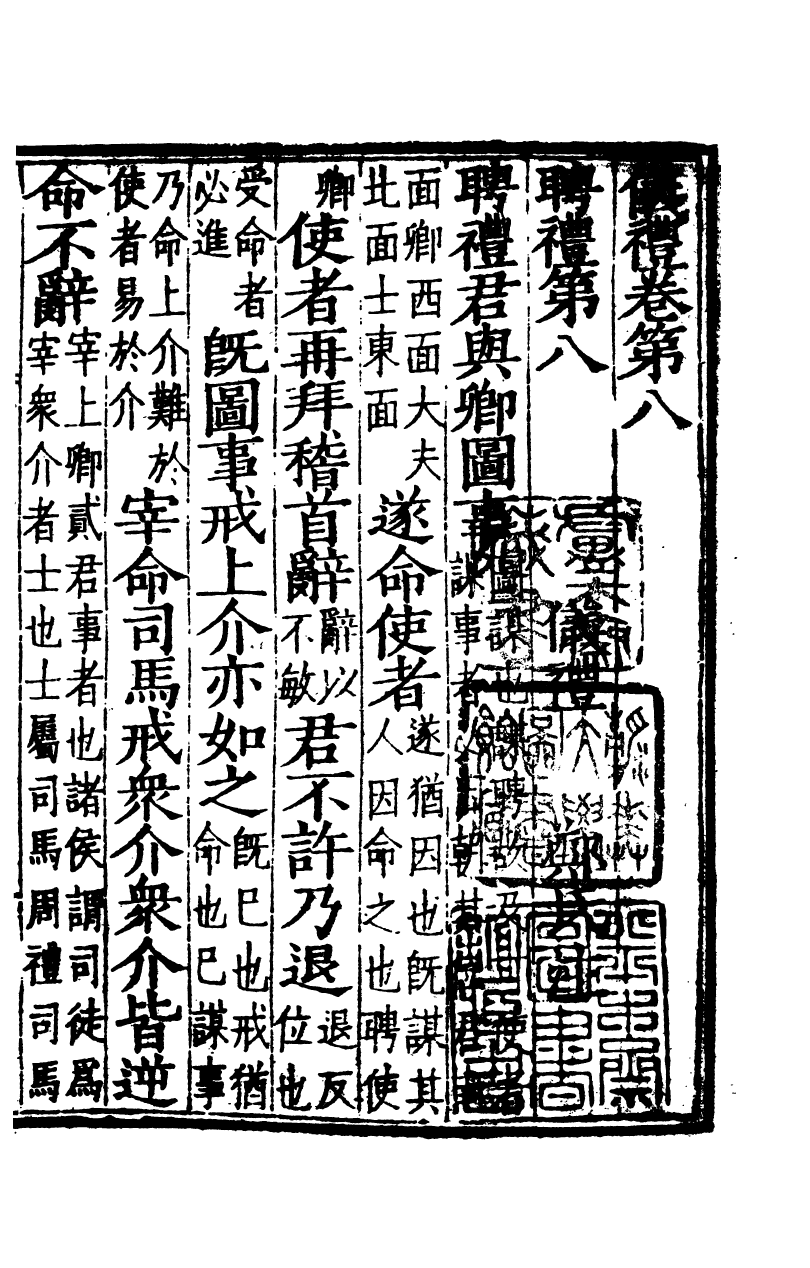 儀禮卷第八
聘禮第八 儀禮
聘禮君與卿圖事
圖謀也謀聘故及可使
謀事者必因朝其位君南
面卿西面大夫
北面士東面
遂命使者
遂猶因也既謀其
人因命之也聘使
卿
使者再拜稽首辭
辭以
不敏
君不許乃退
退反
位也
受命者
必進
既圖事戒上介亦如之
既已也戒猶
命也已謀事
乃命上介難於
使者易於介
宰命司馬戒衆介衆介皆逆
命不辭
宰上卿貳君事者也諸侯謂司徒爲
宰衆介者士也士屬司馬周禮司馬